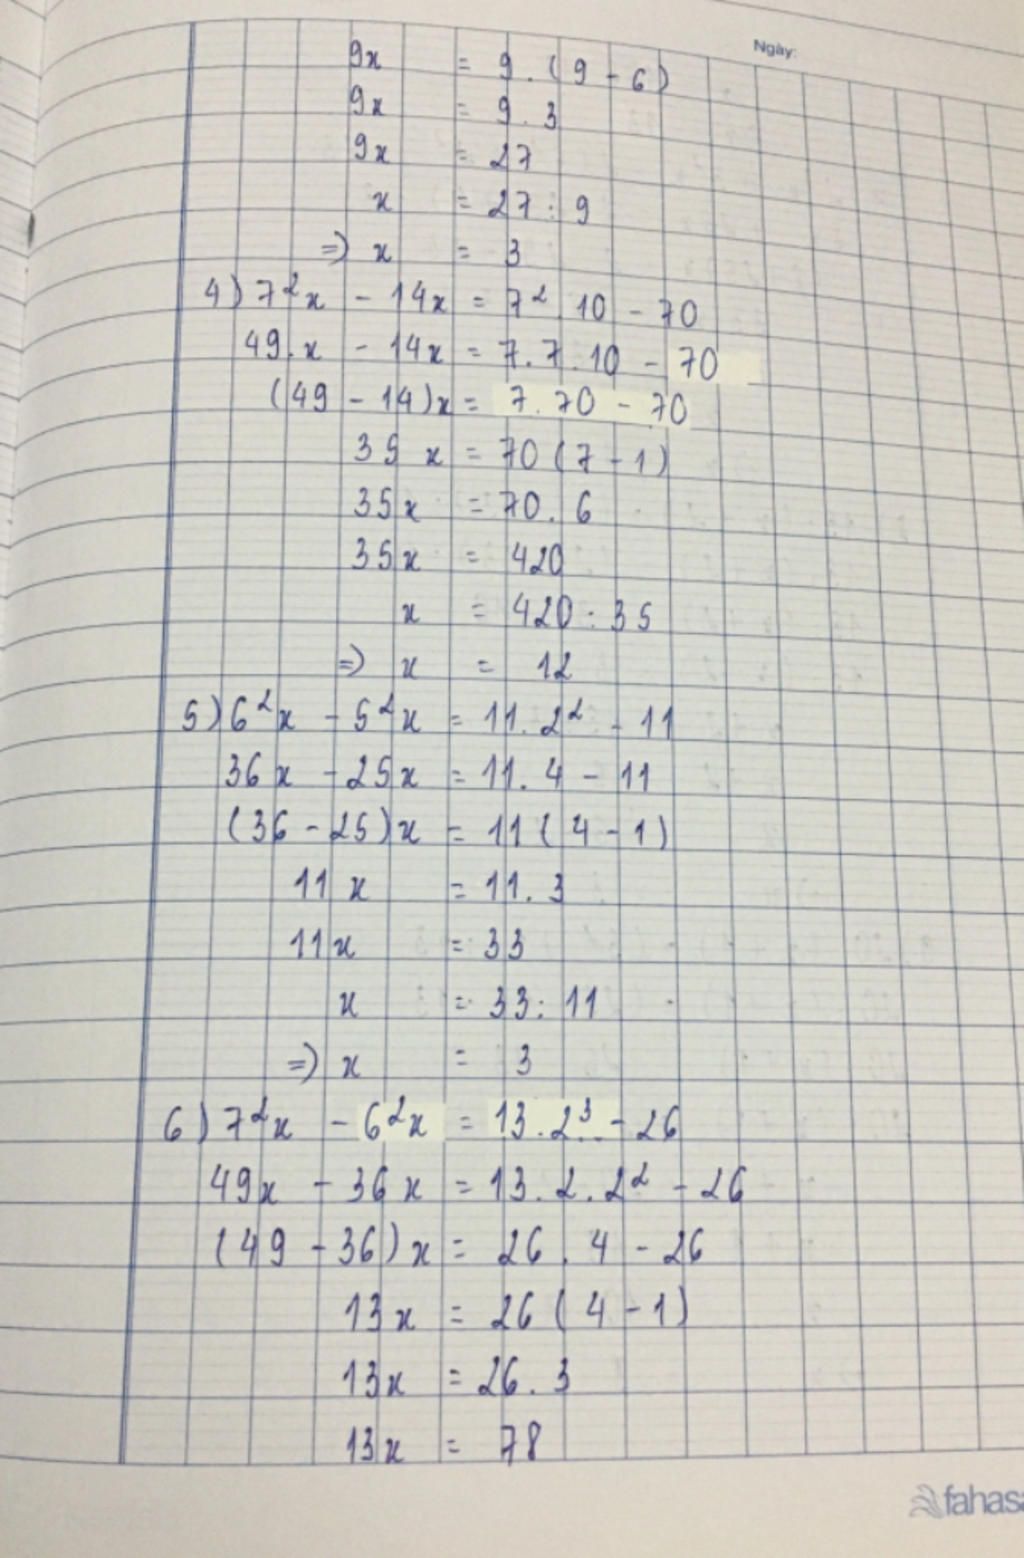 Ngày:
9x = 9.(9-6)
9x = 9.3
9x = 27
x = 27:9
=) x = 3
4) 7²x - 14x = 7².10 - 70
49.x - 14x = 7.7.10 - 70
(49 - 14)x = 7.70 - 70
35x = 70(7-1)
35x = 70.6
35x = 420
x = 420:35
=) x = 12
5) 6²x - 5²x = 11.2² - 11
36x - 25x = 11.4 - 11
(36 - 25)x = 11(4-1)
11x = 11.3
11x = 33
x = 33:11
=) x = 3
6) 7²x - 6²x = 13.2³ - 26
49x - 36x = 13.2.2² - 26
(49 - 36)x = 26.4 - 26
13x = 26(4-1)
13x = 26.3
13x = 78
fahasa